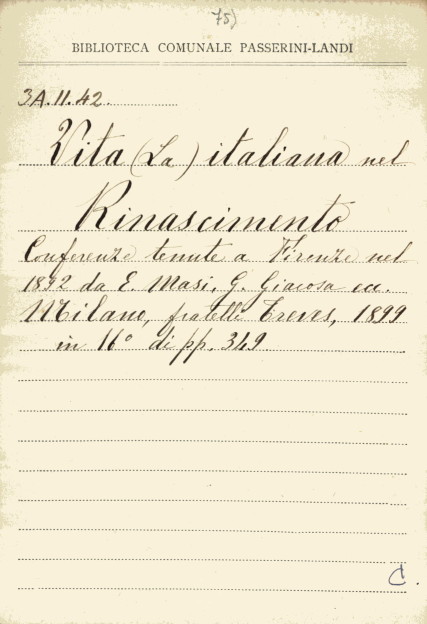 75)
BIBLIOTECA COMUNALE PASSERINI-LANDI
3A.11.42.
Vita (La) italiana nel
Rinascimento
Conferenze tenute a Firenze nel
1892 da E. Masi, G. Giacosa ecc.
Milano, fratelli Treves, 1899
in 16° di pp. 349
C.